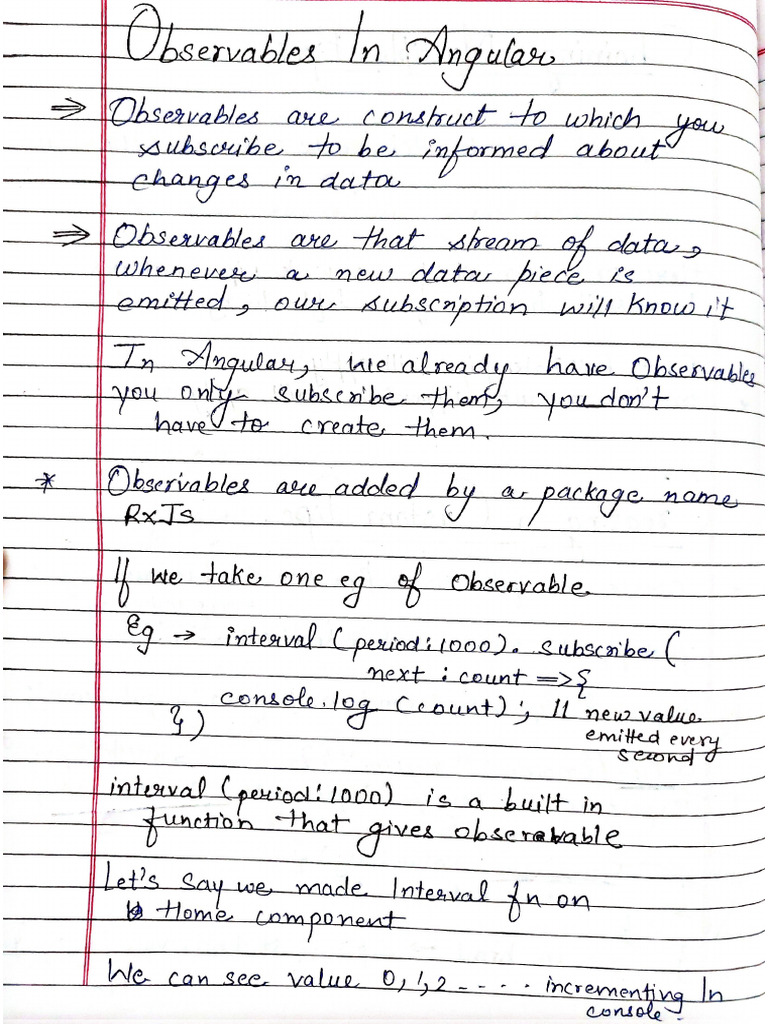 Observables In Angular
⇒ Observables are construct to which you
subscribe to be informed about
changes in data
⇒ Observables are that stream of data,
whenever a new data piece is
emitted, our subscription will know it
In Angular, we already have Observables
you only subscribe them, you don't
have to create them.
* Observables are added by a package name
RxJS
If we take one eg of Observable.
Eg → interval (period:1000). subscribe (
next : count => {
console.log (count); // new value
emitted every
second
})
interval (period:1000) is a built in
function that gives observable
Let's say we made Interval fn on
Home component
We can see value 0,1,2 - - - - incrementing In
console.